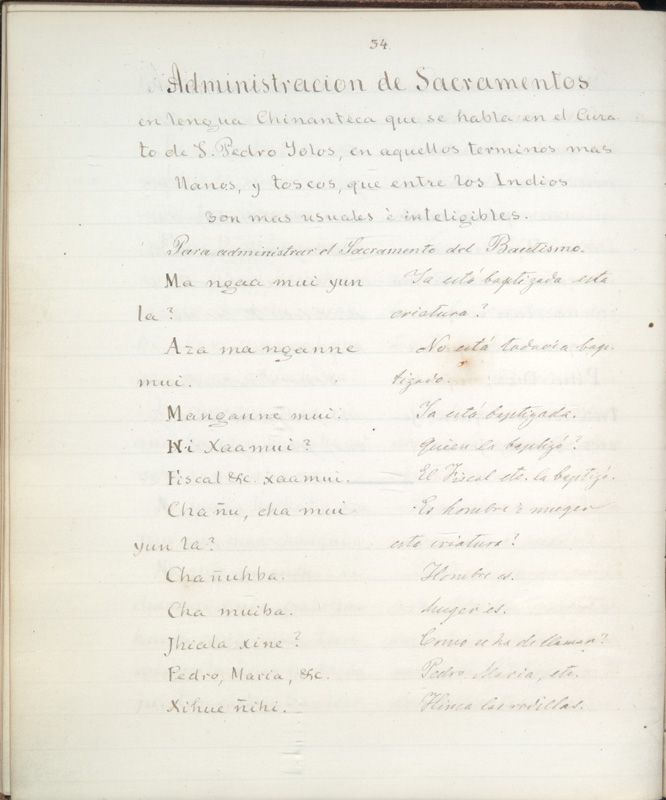 34.
Administracion de Sacramentos
en lengua Chinanteca que se habla en el Cura-
to de S. Pedro Yolos, en aquellos terminos mas
llanos, y toscos, que entre los Indios
son mas usuales è inteligibles.
Para administrar el Sacramento del Bautismo.
Ma ngaa mui yun Ya está baptizada esta
la? criatura?
Aza ma nganne No está todavia bap-
mui. tizado.
Manganne mui. Ya está baptizada.
Hi Xaamui? Quien la baptizó?
Fiscal &c. xaamui. El Fiscal etc. la baptizó.
Cha ñu, cha mui Es hombre ò muger
yun la? esta criatura?
Chañuhba. Hombre es.
Cha muiba. Muger es.
Jhiala xine? Como se ha de llamar?
Pedro, Maria, &c. Pedro Maria, etc.
Xihue ñihi. Hinca las rodillas.